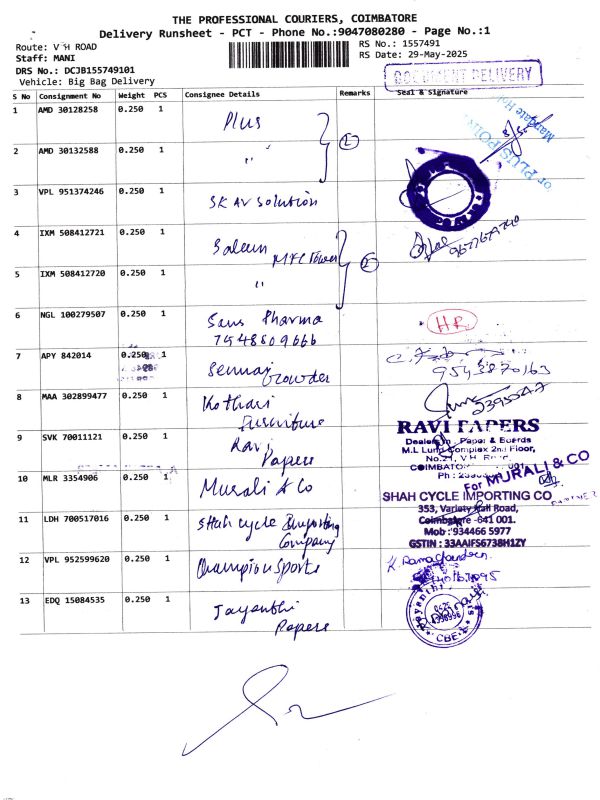 THE PROFESSIONAL COURIERS, COIMBATORE
Delivery Runsheet - PCT - Phone No.:9047080280 - Page No.:1
Route: V H ROAD
RS No.: 1557491
Staff: MANI
RS Date: 29-May-2025
DRS No.: DCJB155749101
Vehicle: Big Bag Delivery
DOCUMENT DELIVERY
S No Consignment No Weight PCS Consignee Details Remarks Seal & Signature
1 AMD 30128258 0.250 1 Plus
2 AMD 30132588 0.250 1 "
2
For PLUS POINT
3 VPL 951374246 0.250 1 SK AV Solution
4 IXM 508412721 0.250 1 Saleem MFC Tower
5 IXM 508412720 0.250 1 "
2
6 NGL 100279507 0.250 1 Sans Pharma
7548809666
HR
7 APY 842014 0.250 1 Sennai
Growder
9543870163
8 MAA 302899477 0.250 1 Kothari
Furniture
9 SVK 70011121 0.250 1 Ravi
Papers
RAVI PAPERS
Dealers in : Paper & Boards
M.L Lung Complex 2nd Floor,
No.21, V.H. Road,
COIMBATORE
10 MLR 3354906 0.250 1 Murali & Co
For MURALI & CO
PARTNER
11 LDH 700517016 0.250 1 Shah cycle Importing
Company
SHAH CYCLE IMPORTING CO
353, Variety Hall Road,
Coimbatore -641 001.
Mob : 934466 5977
GSTIN : 33AAIFS6738H1ZY
12 VPL 952599620 0.250 1 Champion Sports
K. Ramachandran
13 EDQ 15084535 0.250 1 Jayanthi
Papers
CBE